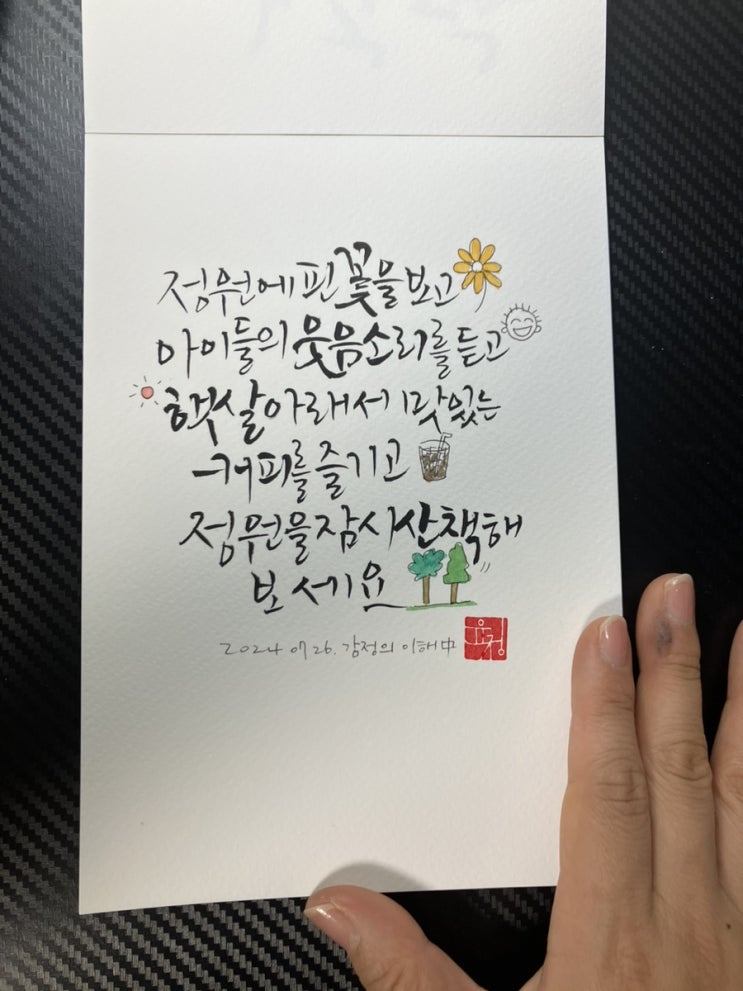 정원에 핀 꽃을 보고
아이들의 웃음소리를 듣고
햇살아래서 맛있는
커피를 즐기고
정원을 잠시 산책해
보세요
2024 07 26. 감정의 이해 中